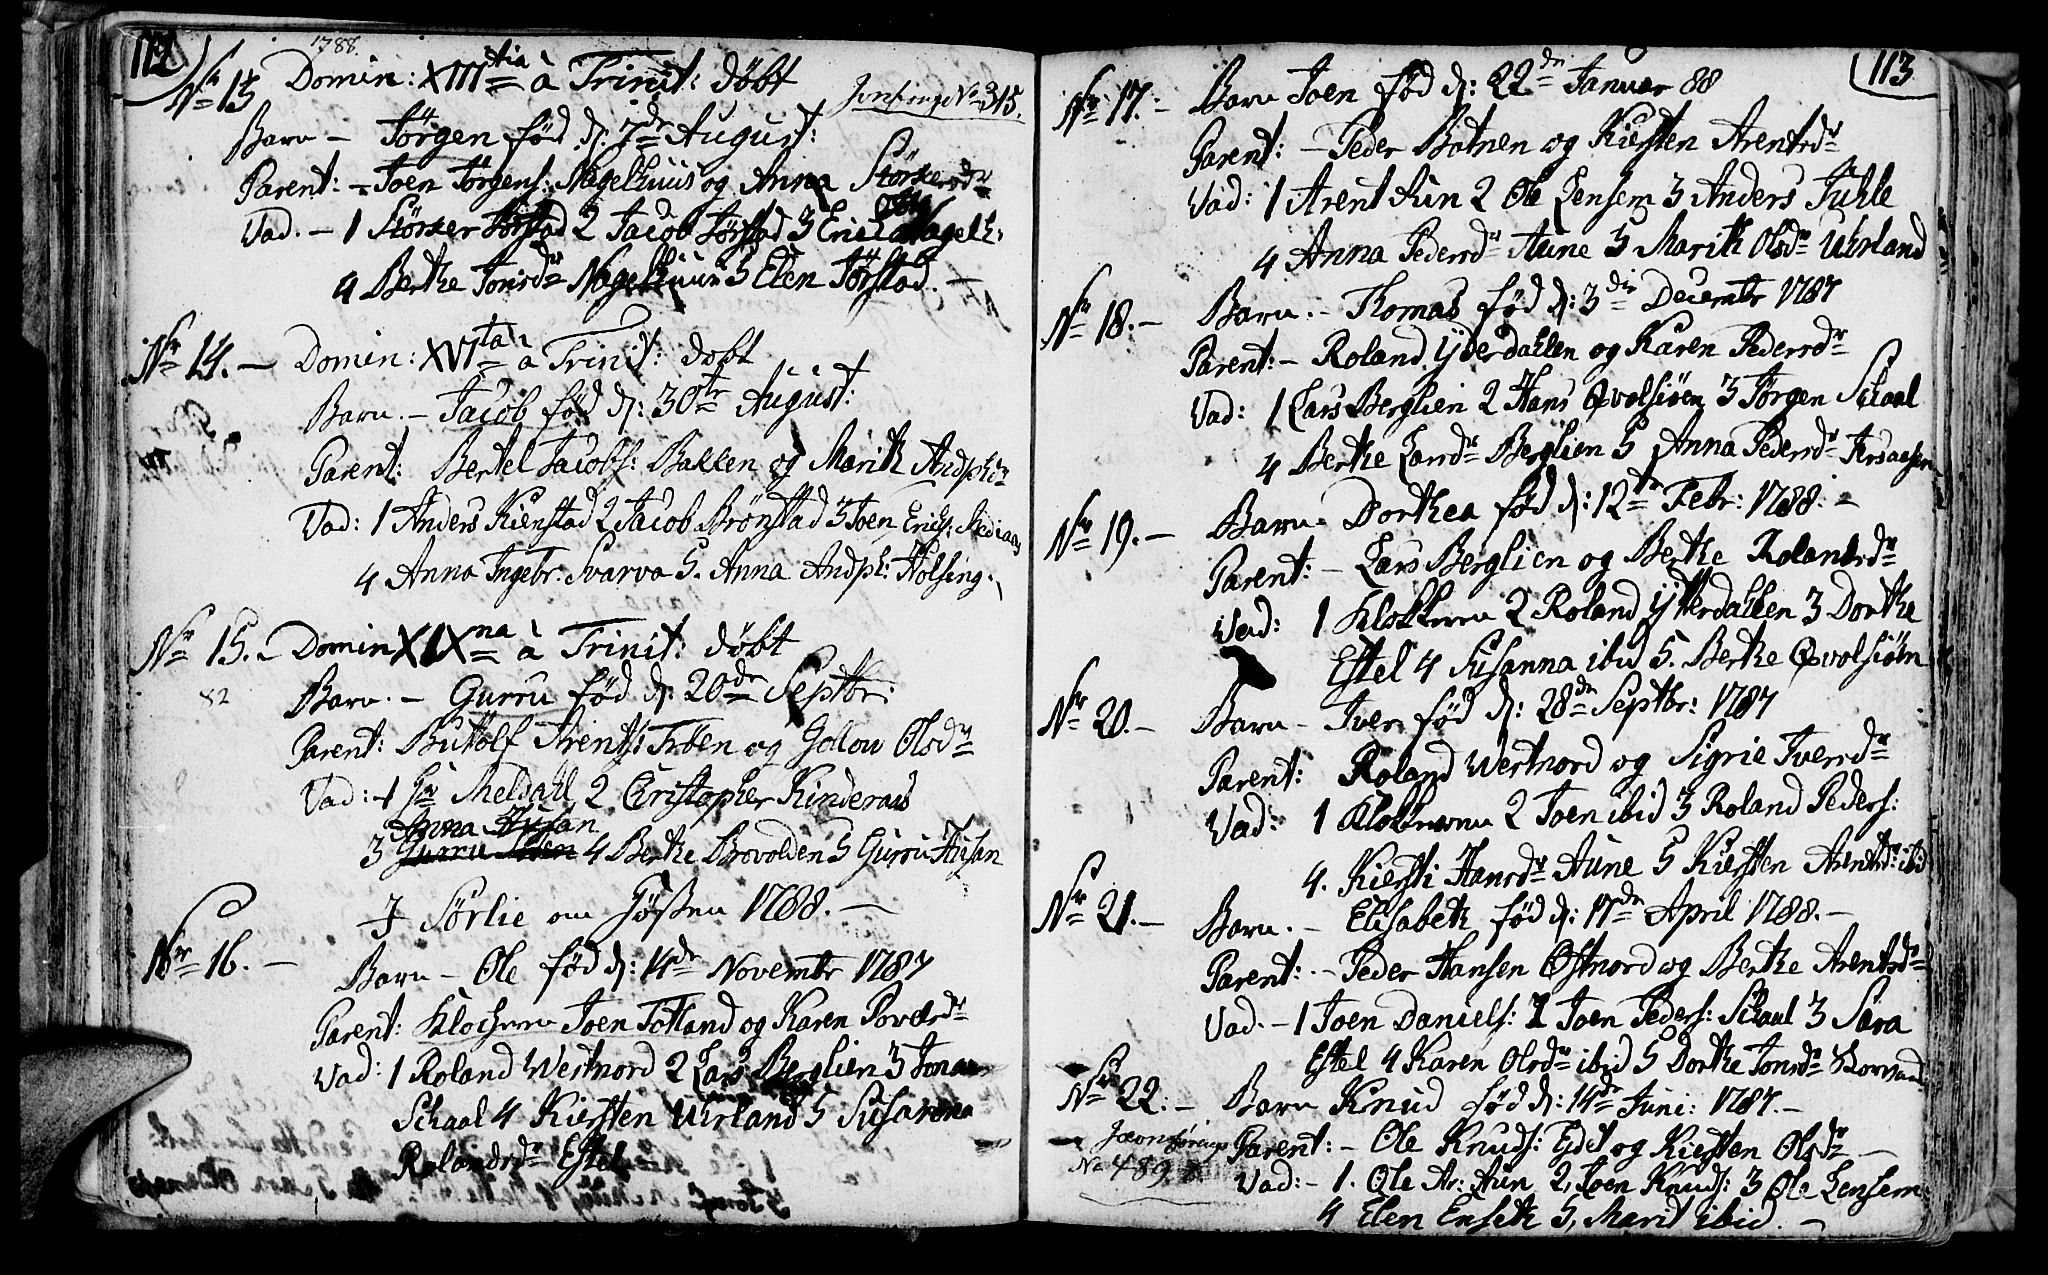 112
1788.
Nr 13 Domin: XIIItia à Trinit: døbt
No 315.
Barn – Jørgen fød d: 7de August:
Parent: – Joen Jørgens: Nagelhuus og Anna Størkersdr
Vad. – 1 Størker Jørstad 2 Jacob Jørstad 3 Eric Nagelh:
4 Berthe Jonsdr Nagelhuus 5 Elen Jørstad. –
Nr 14. – Domin: XVIta à Trinit: døbt
Barn. – Jacob fød d: 30te August:
Parent: Bertel Jacobs: Bakken og Marith Andphdr
Vad: 1 Anders Kienstad 2 Jacob Brønstad 3 Joen Erichs:
4 Anna Ingebr: Svarva 5. Anna Andph: Holsing.
Nr 15. – Domin XIXna à Trinit: døbt
82
Barn. – Gurru fød d: 20de Septbr:
Parent: Butolf Arents: Trøen og Gollow Olsdr
Vad: – 1 Hr Meldahl 2 Christopher Kinderaas
Anna Husan
3 Gurru 4 Berthe Brovolden 5 Gurru Husan
I Sørlie om Høsten 1788. –
Nr 16. – Barn – Ole fød d: 14de Novembr 1787
Parent: Klocheren Joen Totland og Karen Povelsdr
Vad: 1 Roland Westnord 2 Lars Berglien 3 Jonas
Schaal 4 Kiersten Uhrland 5 Susanna
Rolandsdr Estel
113
Nr 17. – Barn Joen fød d: 22de Januar 88
Parent: – Peder Botnen og Kiersten Arentsdr
Vad: 1 Arent Aun 2 Ole Lensem 3 Anders Tuhle
4 Anna Pedersdr Aune 5 Marith Olsdr Uhrland
Nr 18. – Barn. – Thomas fød d: 3die Decembr 1787
Parent: – Roland Yderdahlen og Karen Pedersdr
Vad: 1 Lars Berglien 2 Hans Qvolsiøen 3 Jørgen Schaal
4 Berthe Larsdr Berglien 5 Anna Pedersdr
Nr 19. – Barn – Dorthea fød d: 12te Febr: 1788. –
Parent: – Lars Berglien og Berthe Rolandsdr
Vad: 1 Klokkeren 2 Roland Ytterdahlen 3 Dorthe
Estel 4 Susanna ibid 5. Berthe Qvolsiøen
Nr 20. – Barn – Iver fød d: 28de Septbr: 1787
Parent: Roland Westnord og Sigrie Iversdr
Vad: 1 Klokkeren 2 Joen ibid 3 Roland Peders:
4. Kiersti Hansdr Aune 5 Kiersten Arentsdr ibid
Nr 21. – Barn. – Elisabeth fød d: 17de April 1788. –
Parent: – Peder Hansen Østnord og Berthe Arentsdr
Vad. – 1 Joen Daniels: 2 Joen Peders: Schaal 3 Sara
Estel 4 Karen Olsdr ibid 5 Dorthe Jonsdr
Nr 22. – Barn Knud fød d: 14de Juni: 1787. –
No 489.
Parent: – Ole Knuds: Eidet og Kiersten Olsdr –
Vad: – 1. Ole Ar: Aun 2, Joen Knuds: 3 Ole Lensem:
4 Elen 5, Marit ibid. –